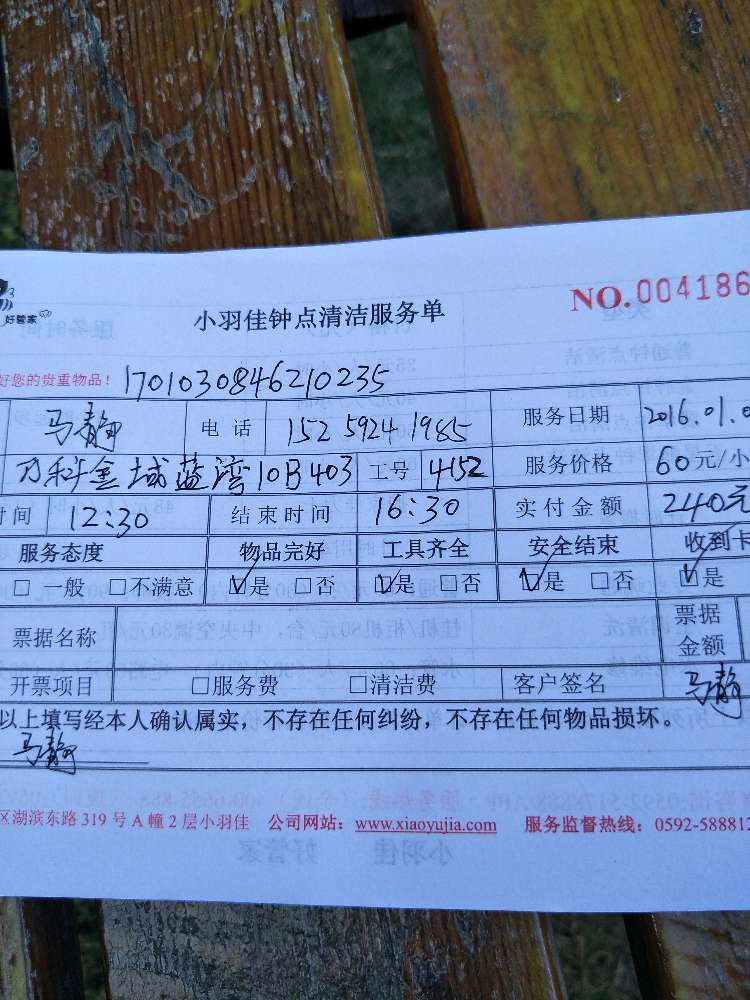 NO.004186
好管家
小羽佳钟点清洁服务单
好您的贵重物品！ 1701030846210235
马静 电话 152 5924 1985 服务日期 2016.01.0
万科金域蓝湾10B403 工号 4152 服务价格 60元/小
时间 12:30 结束时间 16:30 实付金额 240元
服务态度 物品完好 工具齐全 安全结束 收到卡
□一般 □不满意 ☑是 □否 ☑是 □否 ☑是 □否 ☑是
票据名称 票据金额
开票项目 □服务费 □清洁费 客户签名 马静
以上填写经本人确认属实，不存在任何纠纷，不存在任何物品损坏。
马静
区湖滨东路 319 号 A 幢 2 层小羽佳 公司网站：www.xiaoyujia.com 服务监督热线：0592-588812